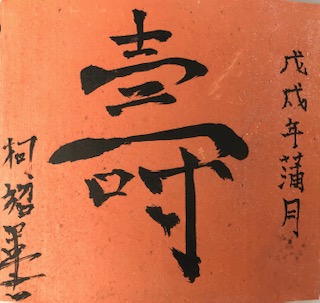 戊戌年蒲月
壽
柯超墨